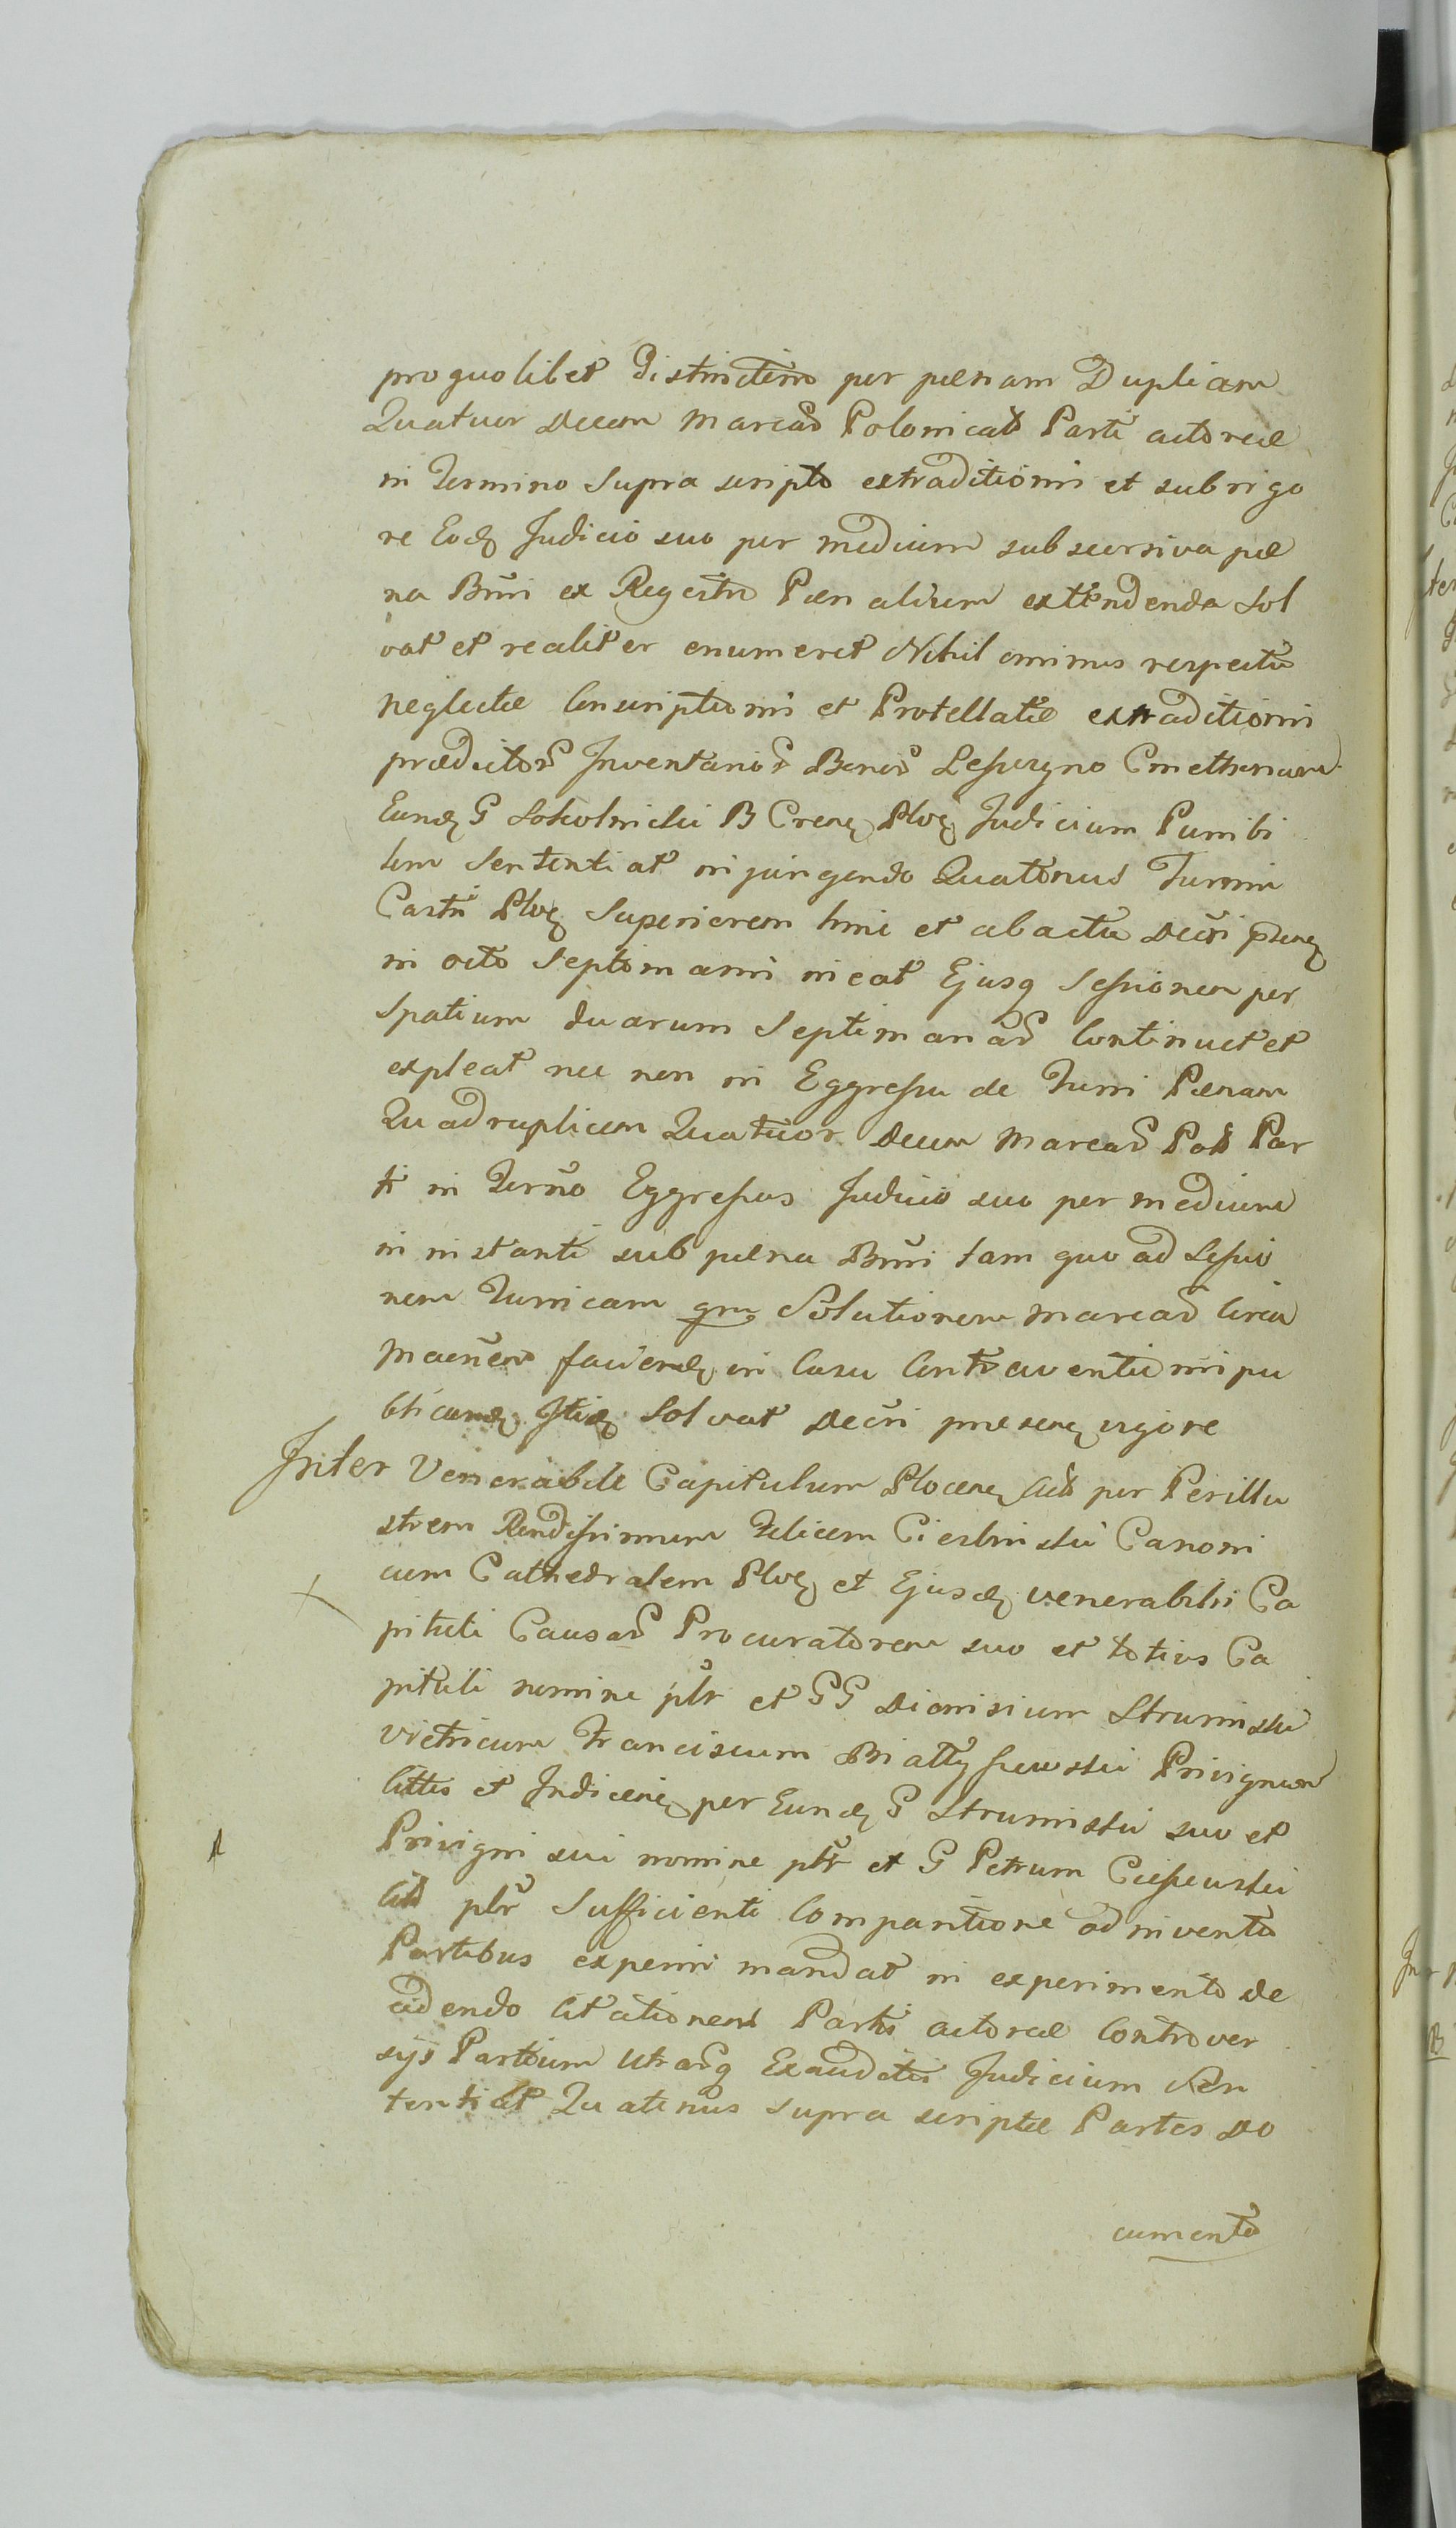 pro quolibet distinctim per pænam Duplicem
Quatuor decem marcas Polonicales Parti actoreæ
in Termino supra scripto extraditionis et sub rigo
re Eodem Judicio suo per medium subsecursiva pæ
na Bnni ex Registro Pænalium extendenda sol
vat et realiter enumeret Nihil ominus respectu
neglectæ Conscriptionis et Protellatæ extraditionis
prædictor Inventarior Bonor Cmethonum
Eund G Sokolnicki B Judicium Punibi
lem Sententiat injungendo Quatenus Turrim
Castri Ploc Superiorem hinc et ab actu Decri
in octo Septimanis ineat Ejusq Sessionem per
spatium duarum Septimanar Continuet et
expleat nec non in Eggressu de Turri Pænam
Quadruplicem Quatuor decem Marcar Pol Par
ti in Termo Eggressus Judicio suo per medium
in instanti sub pæna Bnni tam quo ad Sessio
nem Turricam qm Solutionem marcar circa
faciend in Casu Contraventionis pu
blicand solvat Decri præsen vigore
Inter Venerabile Capitulum Plocen Act per Perillu
strem Rendissimum Felicem Canoni
cum Cathedralem Ploc et Ejusd venerabilis Ca
pituli Causar Procuratorem suo et totius Ca
pituli nomine pltr et GG Dionisium Strumiski
Vitricum Franciscum Privignum
Cittos et Judicen per Eund G Strumiski suo et
Privigni sui nomine pltr et G Petrum
Citt pltr Sufficienti Comparitione adinventa
Partibus experiri mandat in experimento de
cidendo Citationem Partis actoreæ Controver
sys Partium Utrarq Exauditis Judicium Sen
tentiat Quatenus supra scriptæ Partes Do
cumenta